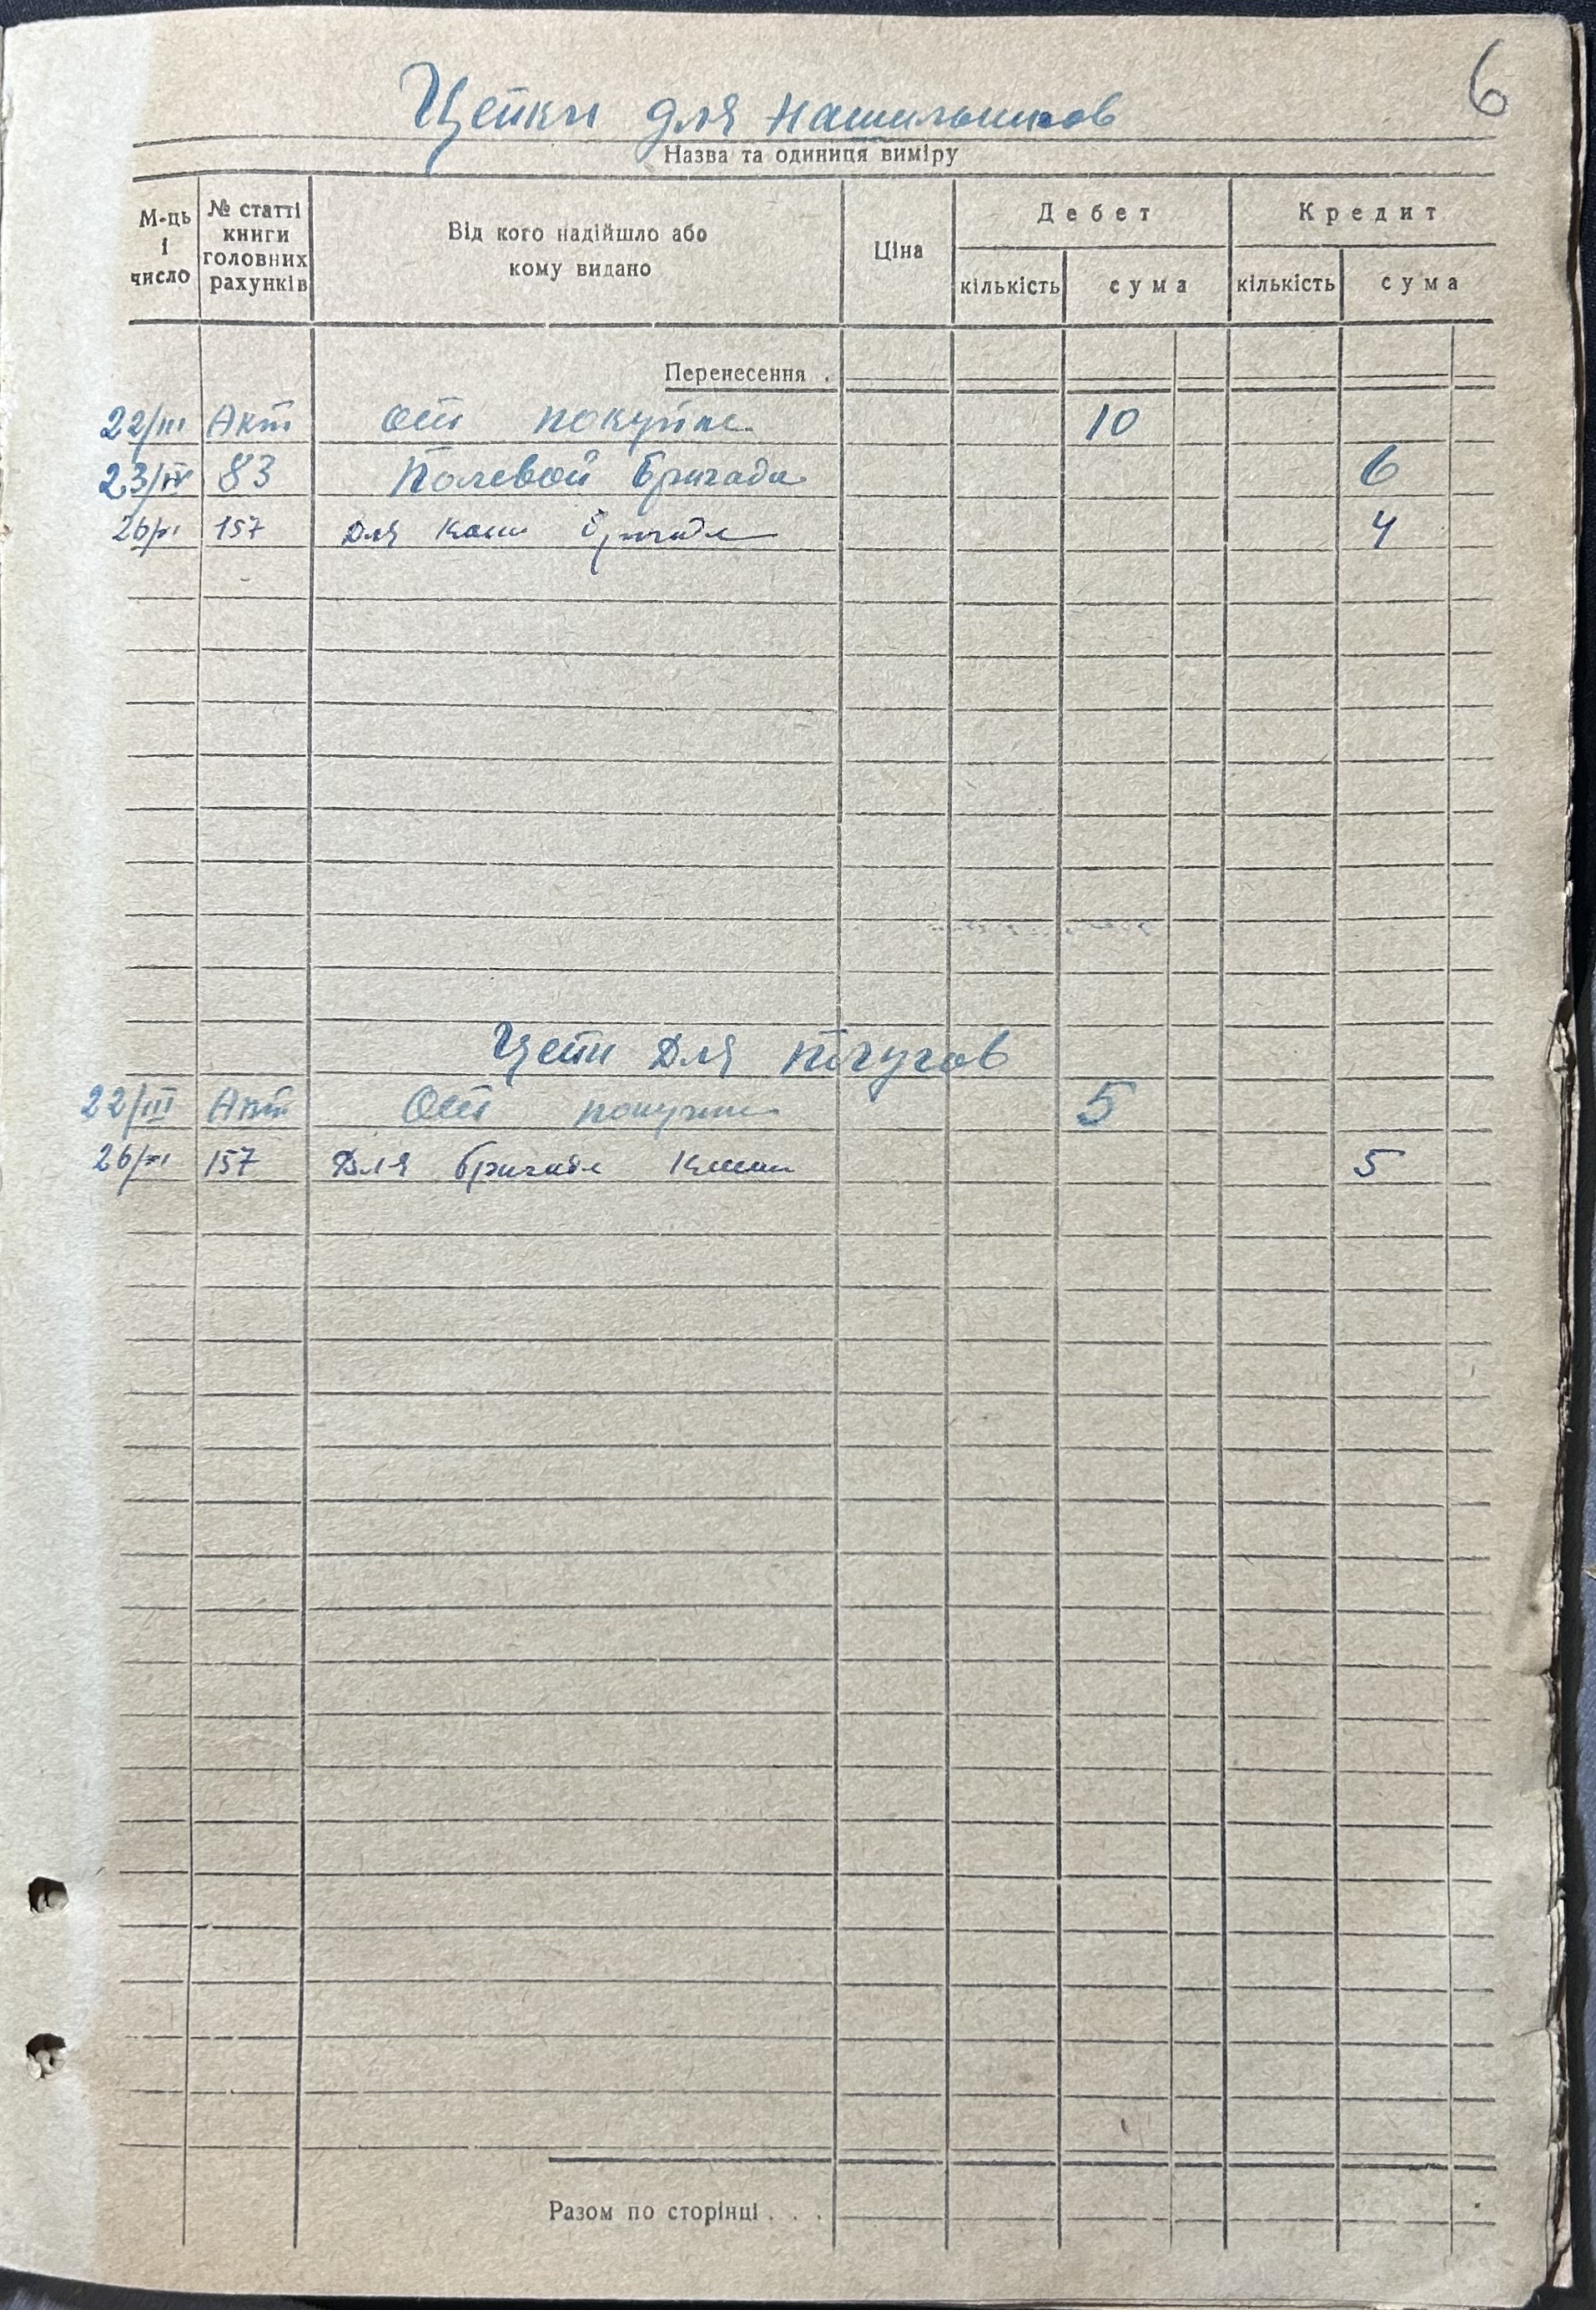 6
Цепки для нашильников
Назва та одиниця виміру
М-ць і число
№ статті книги головних рахунків
Від кого надійшло або кому видано
Ціна
Дебет
Кредит
кількість сума кількість сума
Перенесення .
22/III Акт От покупке 10
23/IV 83 Полевой бригаде 6
157 Для бригаде 4
Цепи для плугов
22/III Акт От покупки 5
157 Для бригаде 5
Разом по сторінці . . .